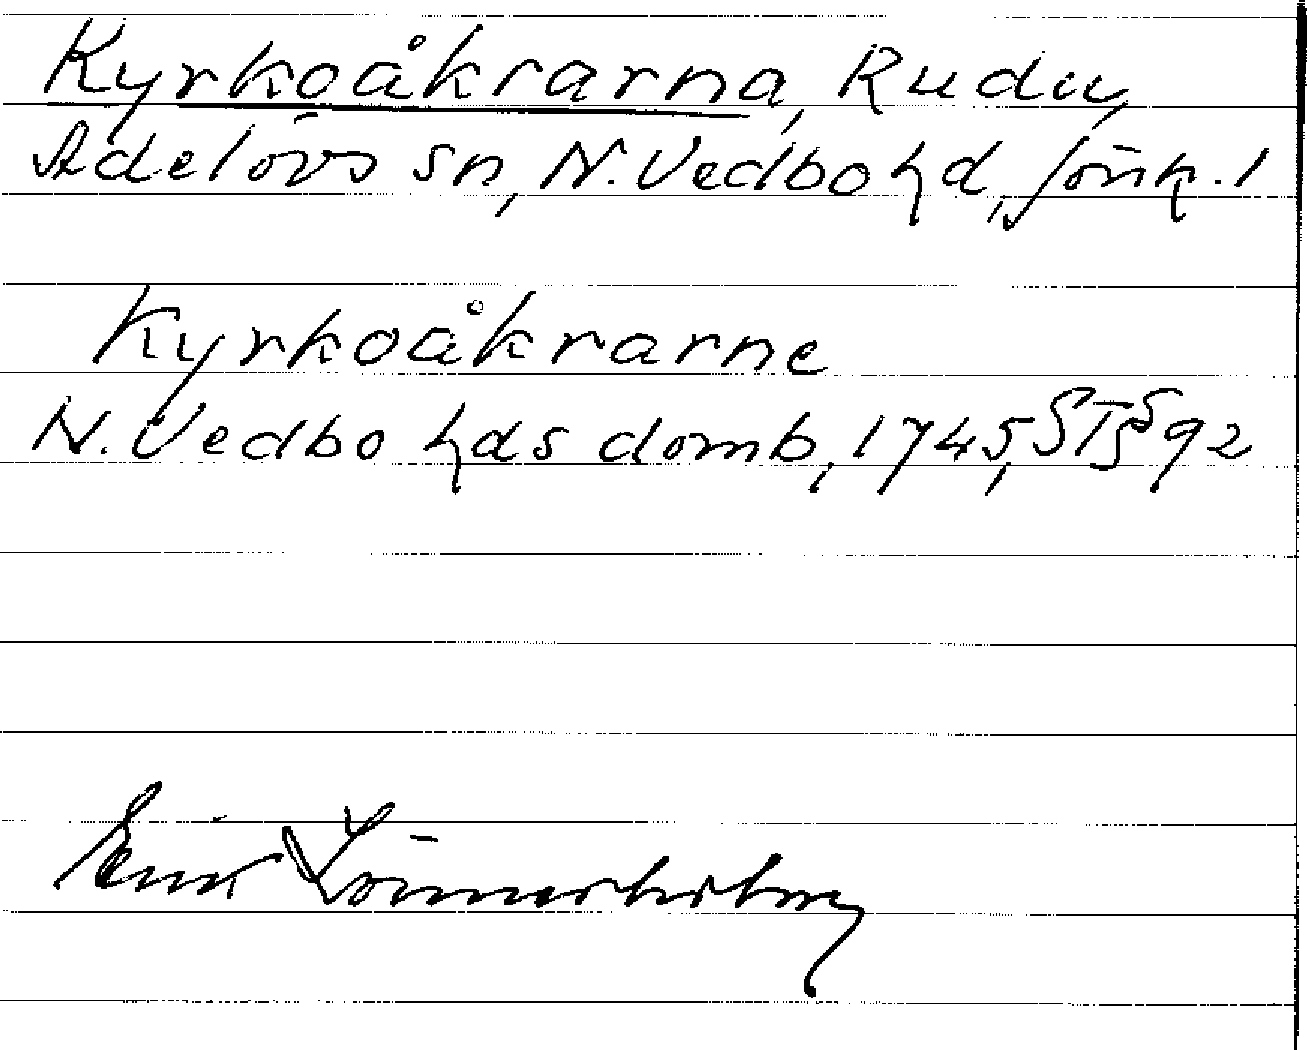 Kyrkoåkrarna, Rudu,
Adelövs sn, N. Vedbo hd, Jönk. l
Kyrkoåkrarne
N. Vedbo hds domb, 1745, ST § 92
Erik Lönnerholm